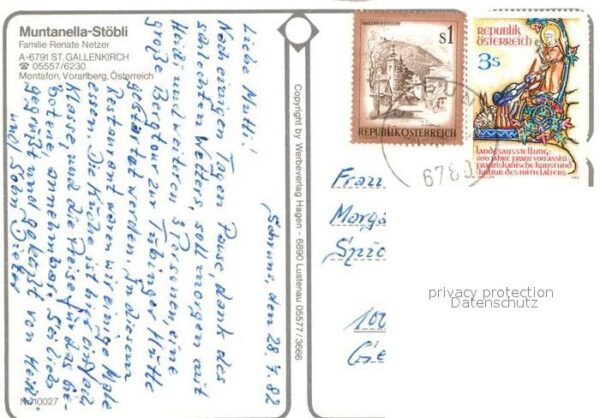 Muntanella-Stöbli
Familie Renate Netzer
A-6791 ST. GALLENKIRCH
☎ 05557/6230
Montafon, Vorarlberg, Österreich
Schruns, den 28.7.82
Liebe Mutti!
Nach einigen Tagen Pause dank des
schlechten Wetters, soll morgen mit
Heidi und weiteren 3 Personen, eine
große Bergtour zur Tübinger Hütte
gestartet werden. In diesem
Restaurant waren wir einige Male
essen. Die Küche ist hier einfach
Klasse, und die Preise für das Ge-
botene annehmbar. Sei lieb
gegrüßt und geküsst von Heidi
und Sohn Dieter
No 10027
Copyright by Werbeverlag Hagen - 6890 Lustenau 05577/3666
s1
REPUBLIK ÖSTERREICH
REPUBLIK
ÖSTERREICH
3s
Landesausstellung:
800 Jahre Franz von Assisi
franziskanische Kunst und
Kultur des Mittelalters
678
Fra
Morg
Spi
100
Ge
privacy protection
Datenschutz